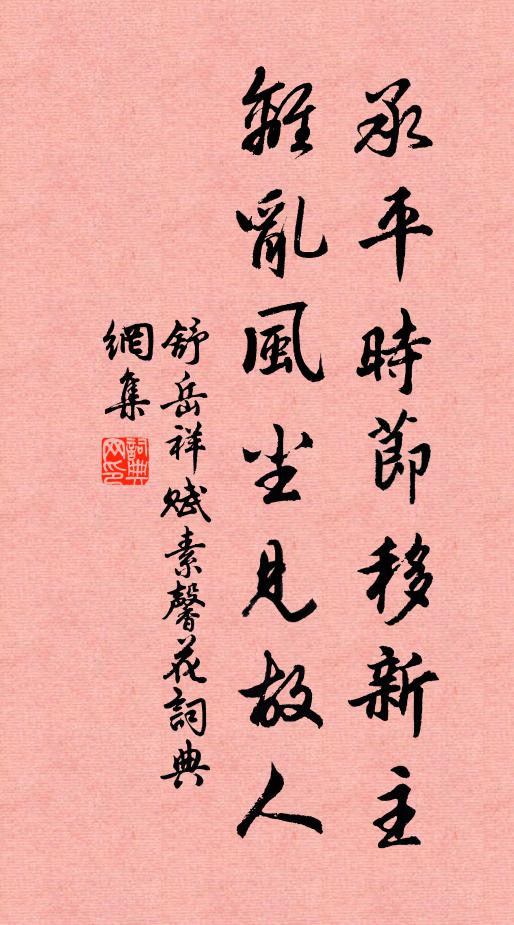 承平時節移新主
離亂風塵見故人
舒岳祥賦素馨花詞典
網集
詞典
网印